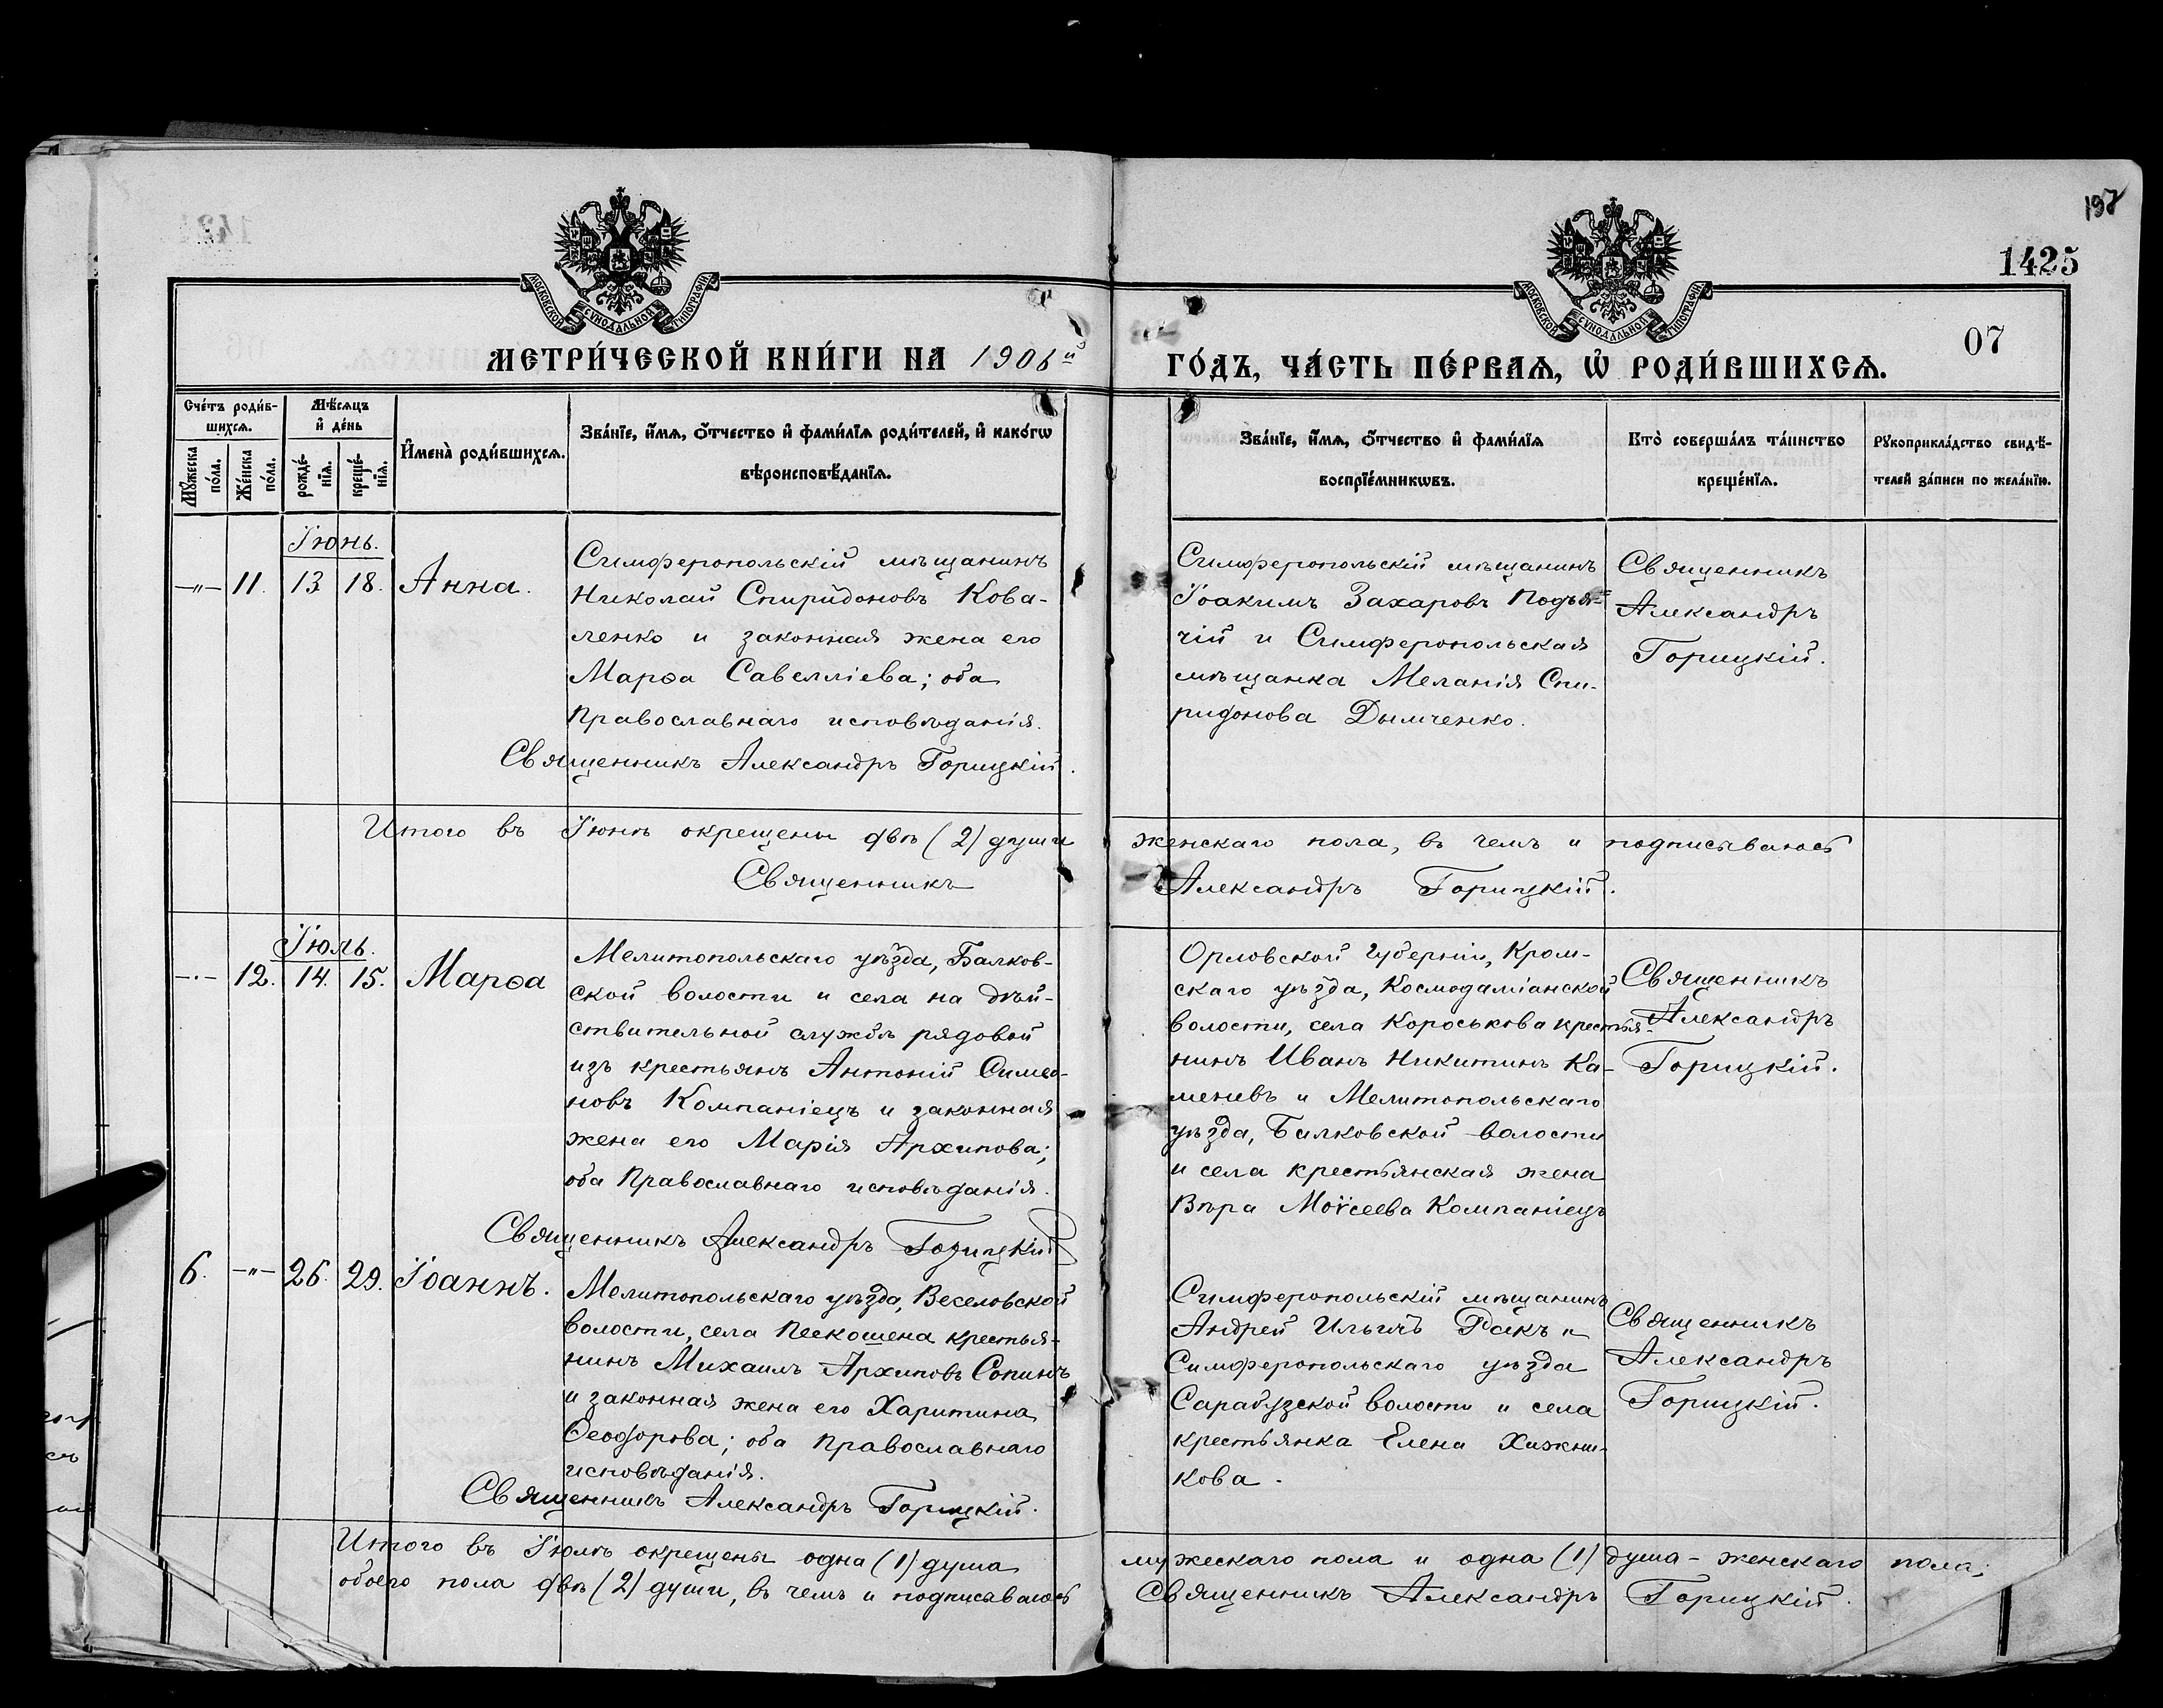 197
1425
07
МОСКОВСКОЙ СѴНОДАЛЬНОЙ ТИПОГРАФІИ
МОСКОВСКОЙ СѴНОДАЛЬНОЙ ТИПОГРАФІИ
МЕТРИ́ЧЕСКОЙ КНИ́ГИ НА 1906й ГО́ДЪ, ЧА́СТЬ ПЕ́РВАѦ, Ѡ҆ РОДИ́ВШИХСѦ.
Сче́тъ роди́в-
шихсѧ.
Мꙋ́жеска по́ла.
Же́нска по́ла.
Мѣ́сѧцъ
и҆ де́нь
рожде́-
нїѧ.
креще́-
нїѧ.
И҆мена̀ роди́вшихсѧ.
Зва́нїе, и҆́мѧ, ѻ҆́тчество и҆ фами́лїѧ роди́телей, и҆ како́гѡ
вѣроисповѣ́данїѧ.
Зва́нїе, и҆́мѧ, ѻ҆́тчество и҆ фами́лїѧ
воспрїе́мникѡвъ.
Кто̀ соверша́лъ та́инство
креще́нїѧ.
Рꙋкоприкла́дство свидѣ́-
телей за́писи по жела́нїю.
Іюнь.
—„— 11. 13. 18. Анна.
Симферопольскій мѣщанинъ
Николай Спиридоновъ Кова-
ленко и законная жена его
Марѳа Савелліева; оба
Православнаго исповѣданія.
Священникъ Александръ Горицкій.
Симферопольскій мѣщанинъ
Іоакимъ Захаровъ Подья-
чій и Симферопольская
мѣщанка Меланія Спи-
ридонова Дымченко.
Священникъ
Александръ
Горицкій.
Итого въ Іюнѣ окрещены двѣ (2) души женскаго пола, въ чемъ и подписываюсь
Священникъ Александръ Горицкій.
Іюль.
—„— 12. 14. 15. Марѳа
Мелитопольскаго уѣзда, Балков-
ской волости и села на дѣй-
ствительной службѣ рядовой
изъ крестьянъ Антоній Симео-
новъ Компаніецъ и законная
жена его Марія Архипова;
оба Православнаго исповѣданія.
Священникъ Александръ Горицкій
Орловской губерніи, Кром-
скаго уѣзда, Космодаміанской
волости, села Короськова крестья-
нинъ Иванъ Никитинъ Ка-
меневъ и Мелитопольскаго
уѣзда, Балковской волости
и села крестьянская жена
Вѣра Моѵсеева Компаніецъ
Священникъ
Александръ
Горицкій.
6. —„— 26. 29. Іоаннъ.
Мелитопольскаго уѣзда, Веселовской
волости, села Пескошена крестья-
нинъ Михаилъ Архиповъ Сопинъ
и законная жена его Харитина
Ѳеодорова; оба Православнаго
исповѣданія.
Священникъ Александръ Горицкій.
Симферопольскій мѣщанинъ
Андрей Ильичъ Ракъ и
Симферопольскаго уѣзда
Сарабузской волости и села
крестьянка Елена Хижни-
кова.
Священникъ
Александръ
Горицкій.
Итого въ Іюлѣ окрещены одна (1) душа мужескаго пола и одна (1) душа - женскаго пола;
обоего пола двѣ (2) души, въ чемъ и подписываюсь Священникъ Александръ Горицкій.